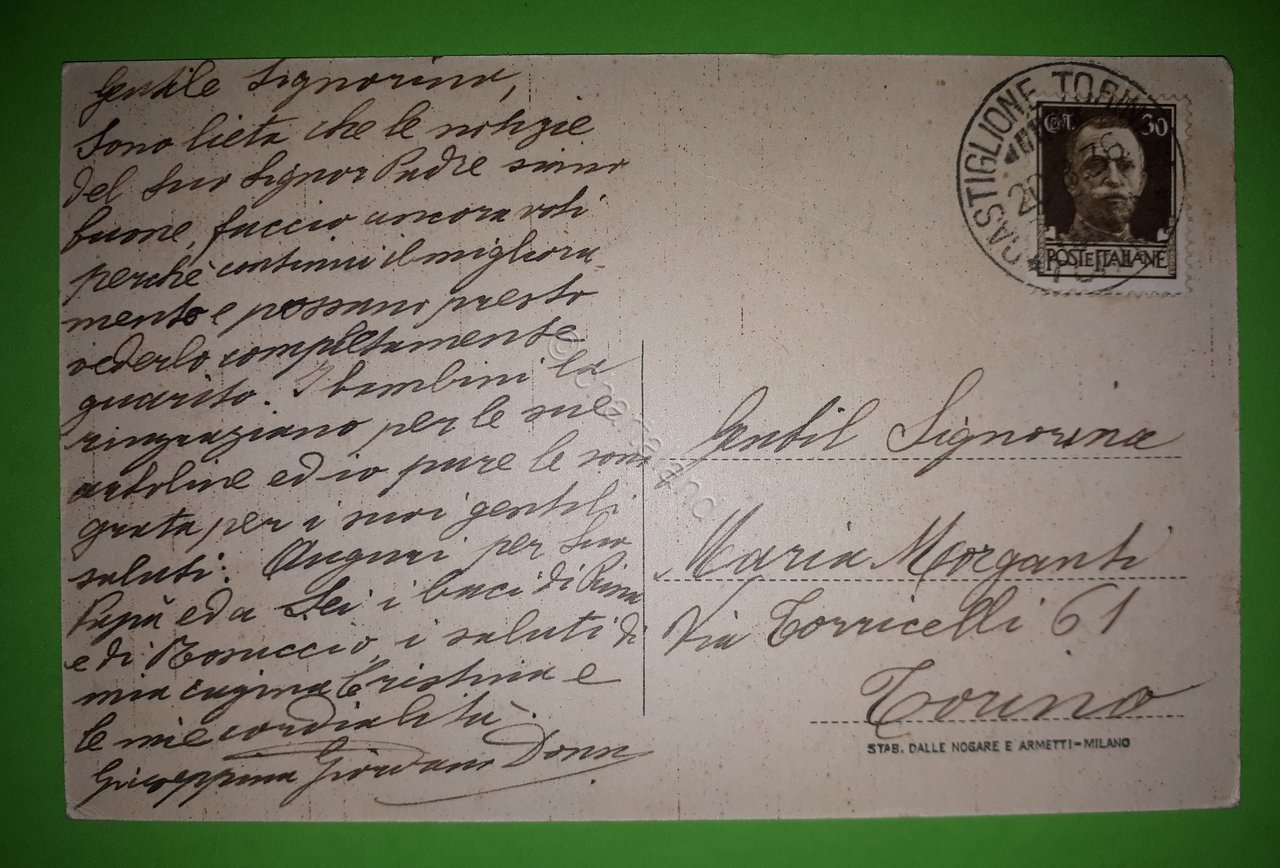 Gentile Signorina,
Sono lieta che le notizie
del suo Signor Padre siano
buone, faccio ancora voti
perchè continui il migliora-
mento e possano presto
vederlo completamente
guarito. I bambini la
ringraziano per le sue
cartoline ed io pure le sono
grata per i suoi gentili
saluti: Auguri per suo
Papà ed a Lei i baci di
e di i saluti di
mia cugina Cristina e
le mie cordialità.
Giuseppina Giordano
CASTIGLIONE TORIN
Cent. 30
POSTE ITALIANE
Gentil Signorina
Maria Morganti
Via Torricelli 61
Torino
STAB. DALLE NOGARE E ARMETTI-MILANO
© cartaland